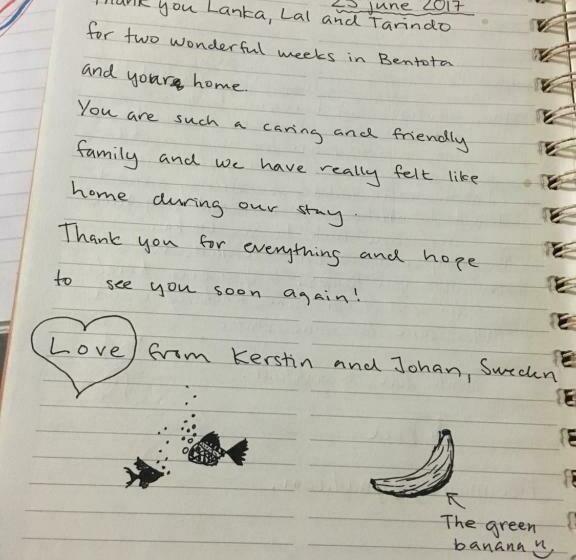 23 June 2017
Thank you Lanka, Lal and Tarindo
for two wonderful weeks in Bentota
and your home.
You are such a caring and friendly
family and we have really felt like
home during our stay.
Thank you for everything and hope
to see you soon again!
Love from Kerstin and Johan, Sweden
The green
banana